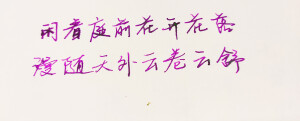 闲看庭前花开花落
漫随天外云卷云舒